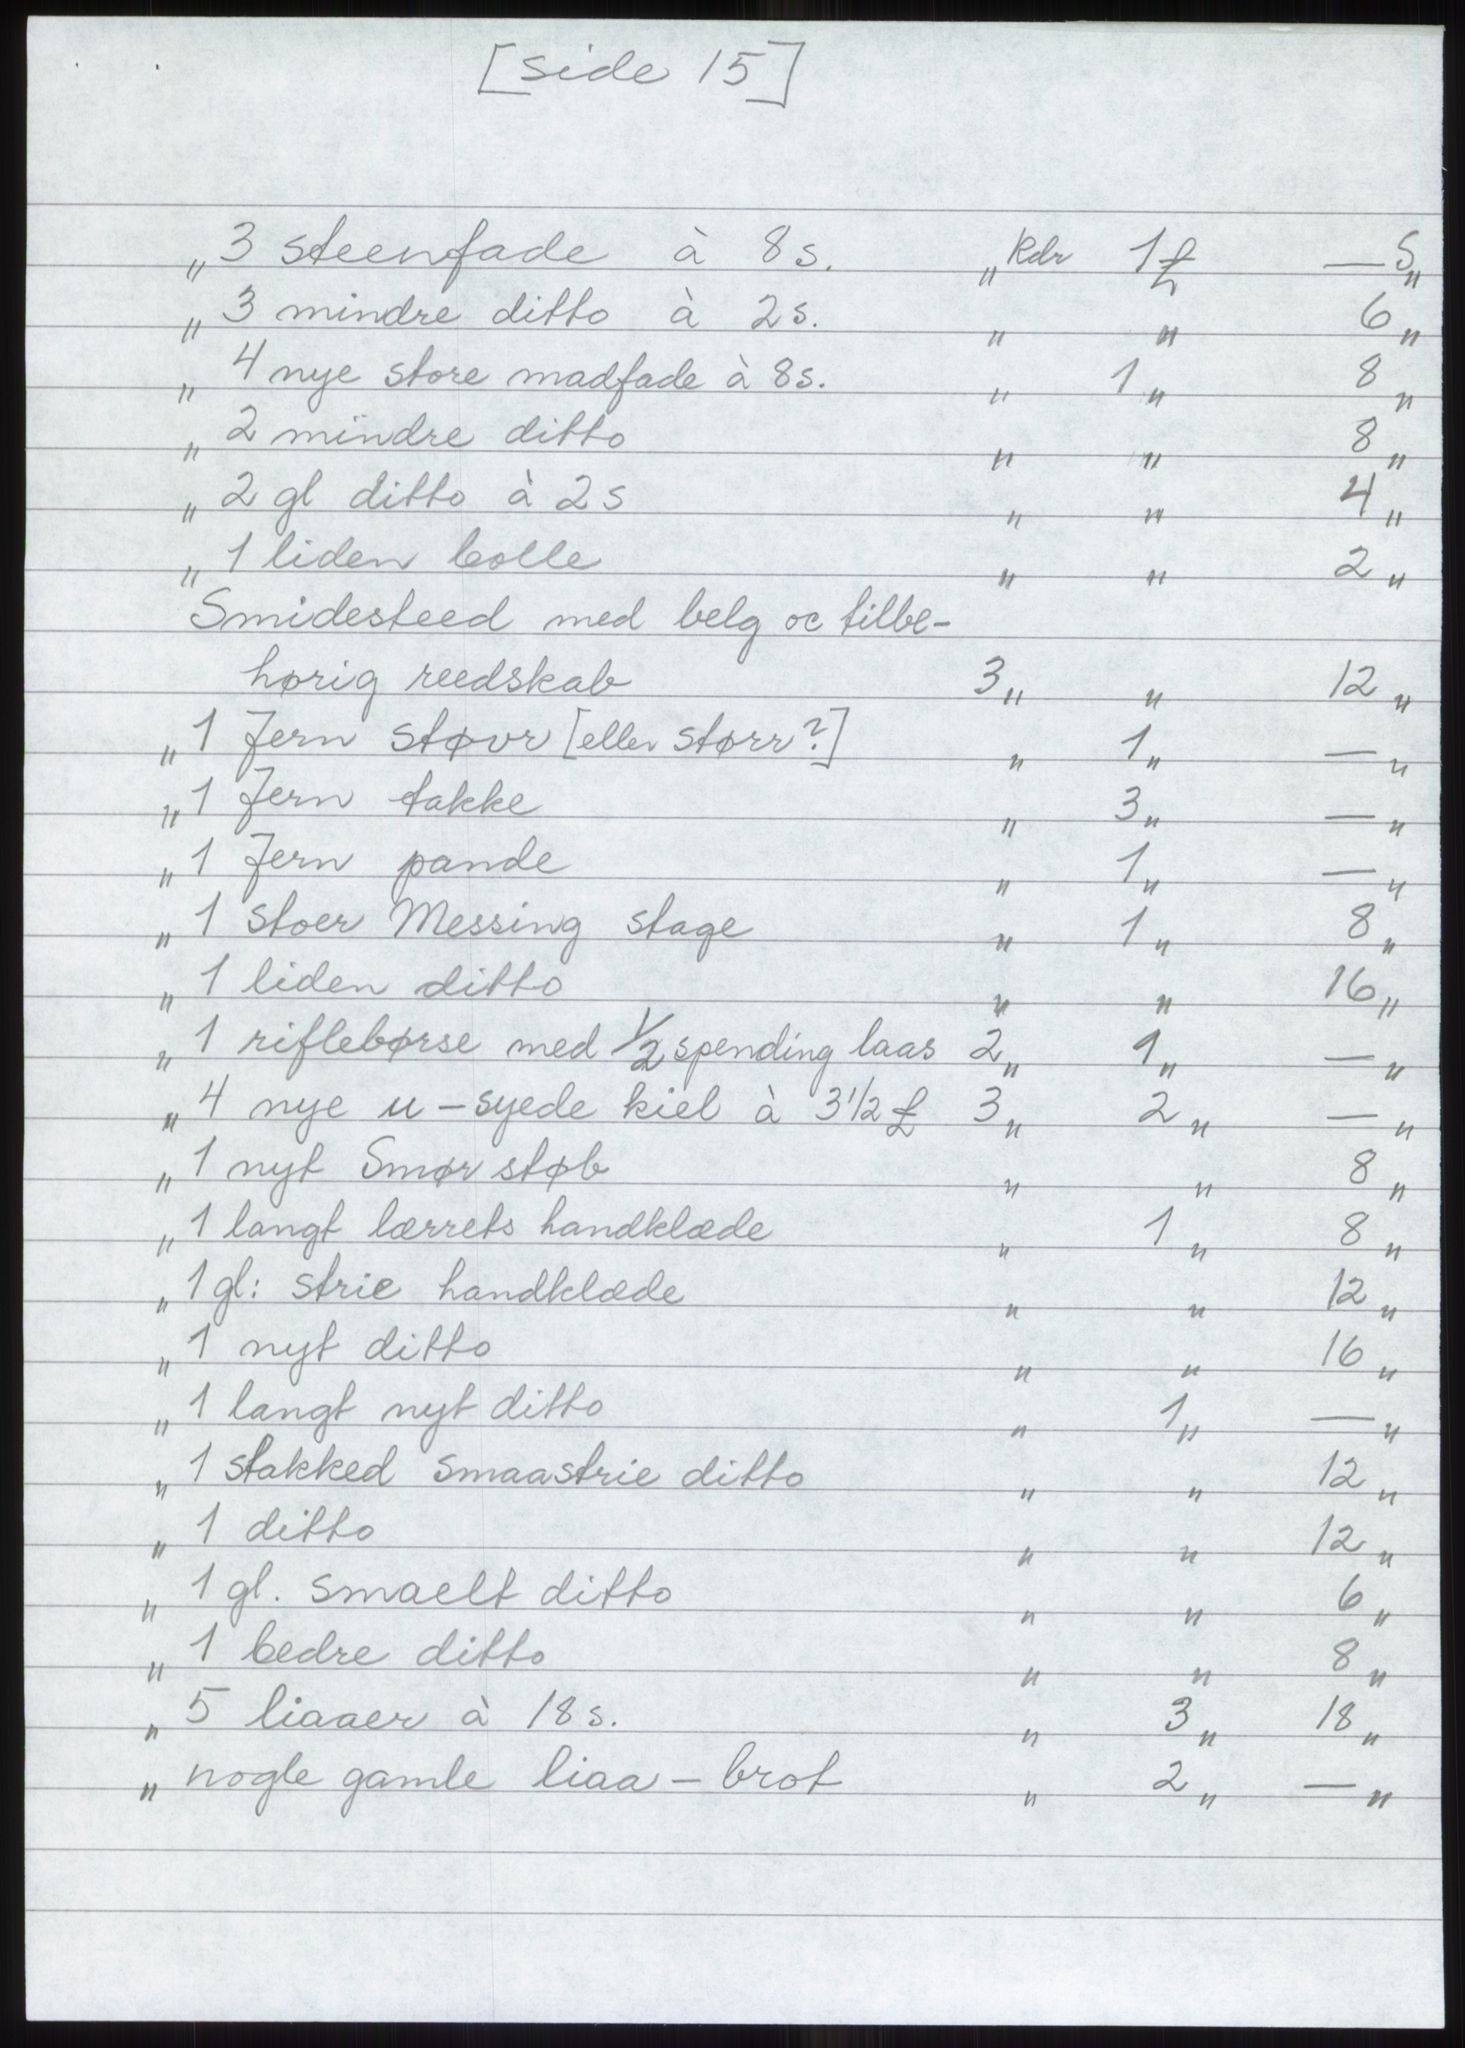 [side 15]
„ 3 steenfade à 8 s. „ Rdr 1 £ — S„
„ 3 mindre ditto à 2 s. „ „ 6 „
„ 4 nye store madfade à 8 s. „ 1 „ 8 „
„ 2 mindre ditto „ „ 8 „
„ 2 gl ditto à 2 s „ „ 4 „
„ 1 liden bolle „ „ 2 „
Smidesteed med belg oc tilbe-
hørig reedskab 3 „ „ 12 „
„ 1 Jern støvr [eller størr?] „ 1 „ — „
„ 1 Jern takke „ 3 „ — „
„ 1 Jern pande „ 1 „ — „
„ 1 stoer Messing stage „ 1 „ 8 „
„ 1 liden ditto „ „ 16 „
„ 1 riflebørse med 1/2 spending laas 2 „ 1 „ — „
„ 4 nye u-syede kiel à 3 1/2 £ 3 „ 2 „ — „
„ 1 nyt Smør støb „ „ 8 „
„ 1 langt lærrets handklæde „ 1 „ 8 „
„ 1 gl: strie handklæde „ „ 12 „
„ 1 nyt ditto „ „ 16 „
„ 1 langt nyt ditto „ 1 „ — „
„ 1 stakked smaastrie ditto „ „ 12 „
„ 1 ditto „ „ 12 „
„ 1 gl. smaelt ditto „ „ 6 „
„ 1 bedre ditto „ „ 8 „
„ 5 liaaer à 18 s. „ 3 „ 18 „
„ nogle gamle liaa-brot „ 2 „ — „